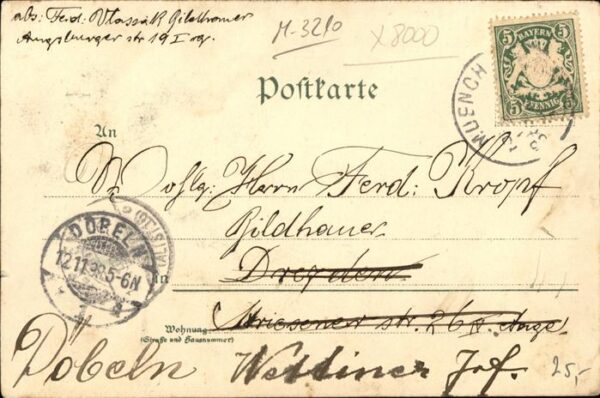 abs: Ferd: Vlassák Bildhauer
Augsburger str 19 I rg.
M-3210
X8000
5 BAYERN 5
5 PFENNIG 5
MUENCH
Postkarte
An
Wohlg: Herrn Ferd: Kropf
Bildhauer
DÖBELN
12.11.99.5-6N
Dresden
in
Wohnung
(Straße und Hausnummer)
Striesener str. 26
Döbeln Wettiner
25,-